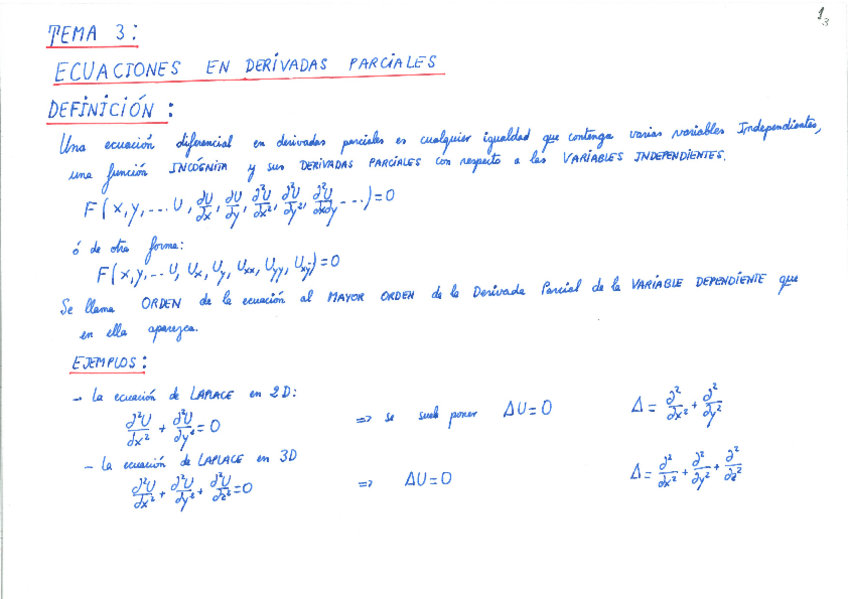 1
3
TEMA 3:
ECUACIONES EN DERIVADAS PARCIALES
DEFINICIÓN:
Una ecuación diferencial en derivadas parciales es cualquier igualdad que contenga varias variables Independientes,
una función INCÓGNITA y sus DERIVADAS PARCIALES con respecto a las VARIABLES INDEPENDIENTES.
F(x,y,...U, ∂U/∂x, ∂U/∂y, ∂²U/∂x², ∂²U/∂y², ∂²U/∂x∂y ---..)=0
ó de otra forma:
F(x,y,...U, Ux, Uy, Uxx, Uyy, Uxy)=0
Se llama ORDEN de la ecuación al MAYOR ORDEN de la Derivada Parcial de la VARIABLE DEPENDIENTE que
en ella aparezca.
EJEMPLOS:
- La ecuación de LAPLACE en 2D:
∂²U/∂x² + ∂²U/∂y² = 0 => se suele poner ΔU=0 Δ = ∂²/∂x² + ∂²/∂y²
- La ecuación de LAPLACE en 3D
∂²U/∂x² + ∂²U/∂y² + ∂²U/∂z² = 0 => ΔU=0 Δ = ∂²/∂x² + ∂²/∂y² + ∂²/∂z²